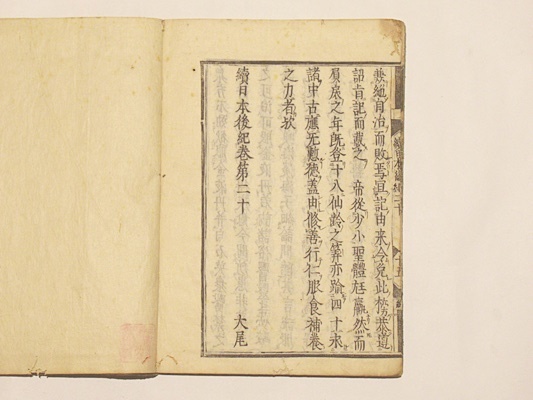 兼絶自治而敗焉宜記由来令免此於恭遵
詔旨記而載之 帝從少小聖體尫羸然而
負扆之年既登十八仙齡之筭亦踰四十求
諸中古應无慙德蓋由修善行仁服食補養
之力者歟
續日本後紀卷第二十 大尾